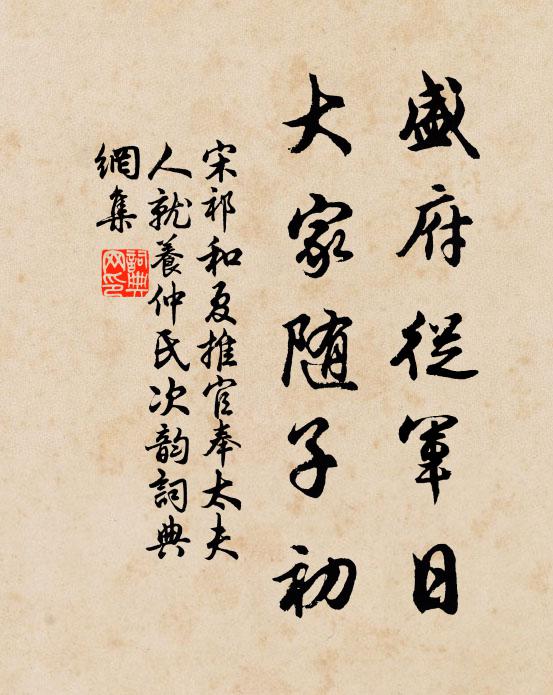 盛府從軍日
大家随子初
宋祁和夏推官奉太夫
人就養仲氏次韵詞典
網集
詞典網印